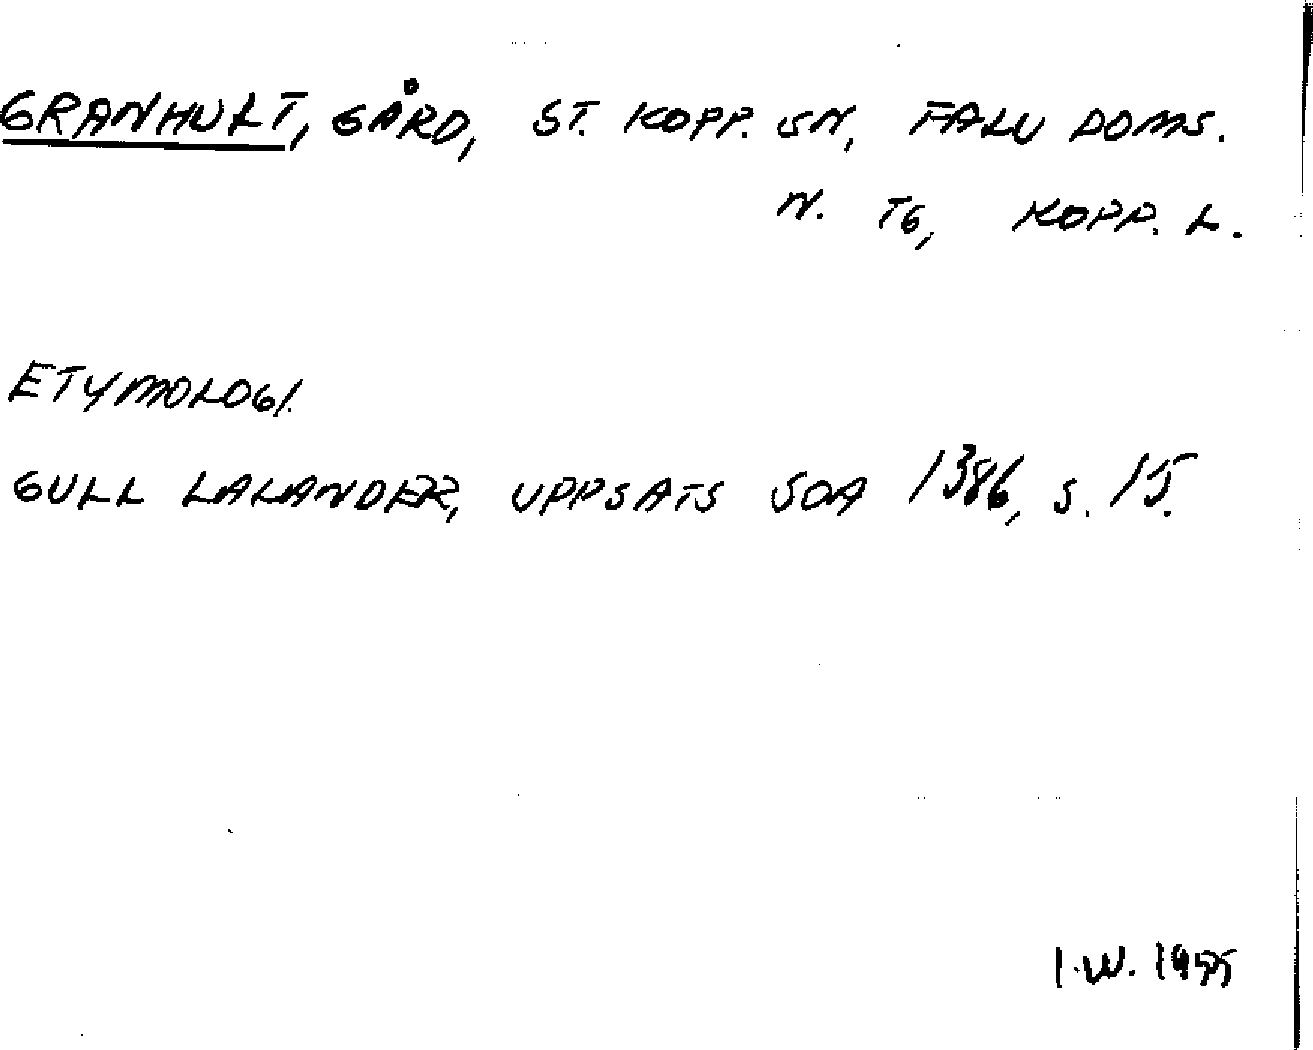 GRANHULT, GÅRD, ST. KOPP. SN, FALU DOMS.
N. TG, KOPP. L.
ETYMOLOGI.
GULL LALANDER, UPPSATS SOA 1386, S. 15.
I.W. 1955